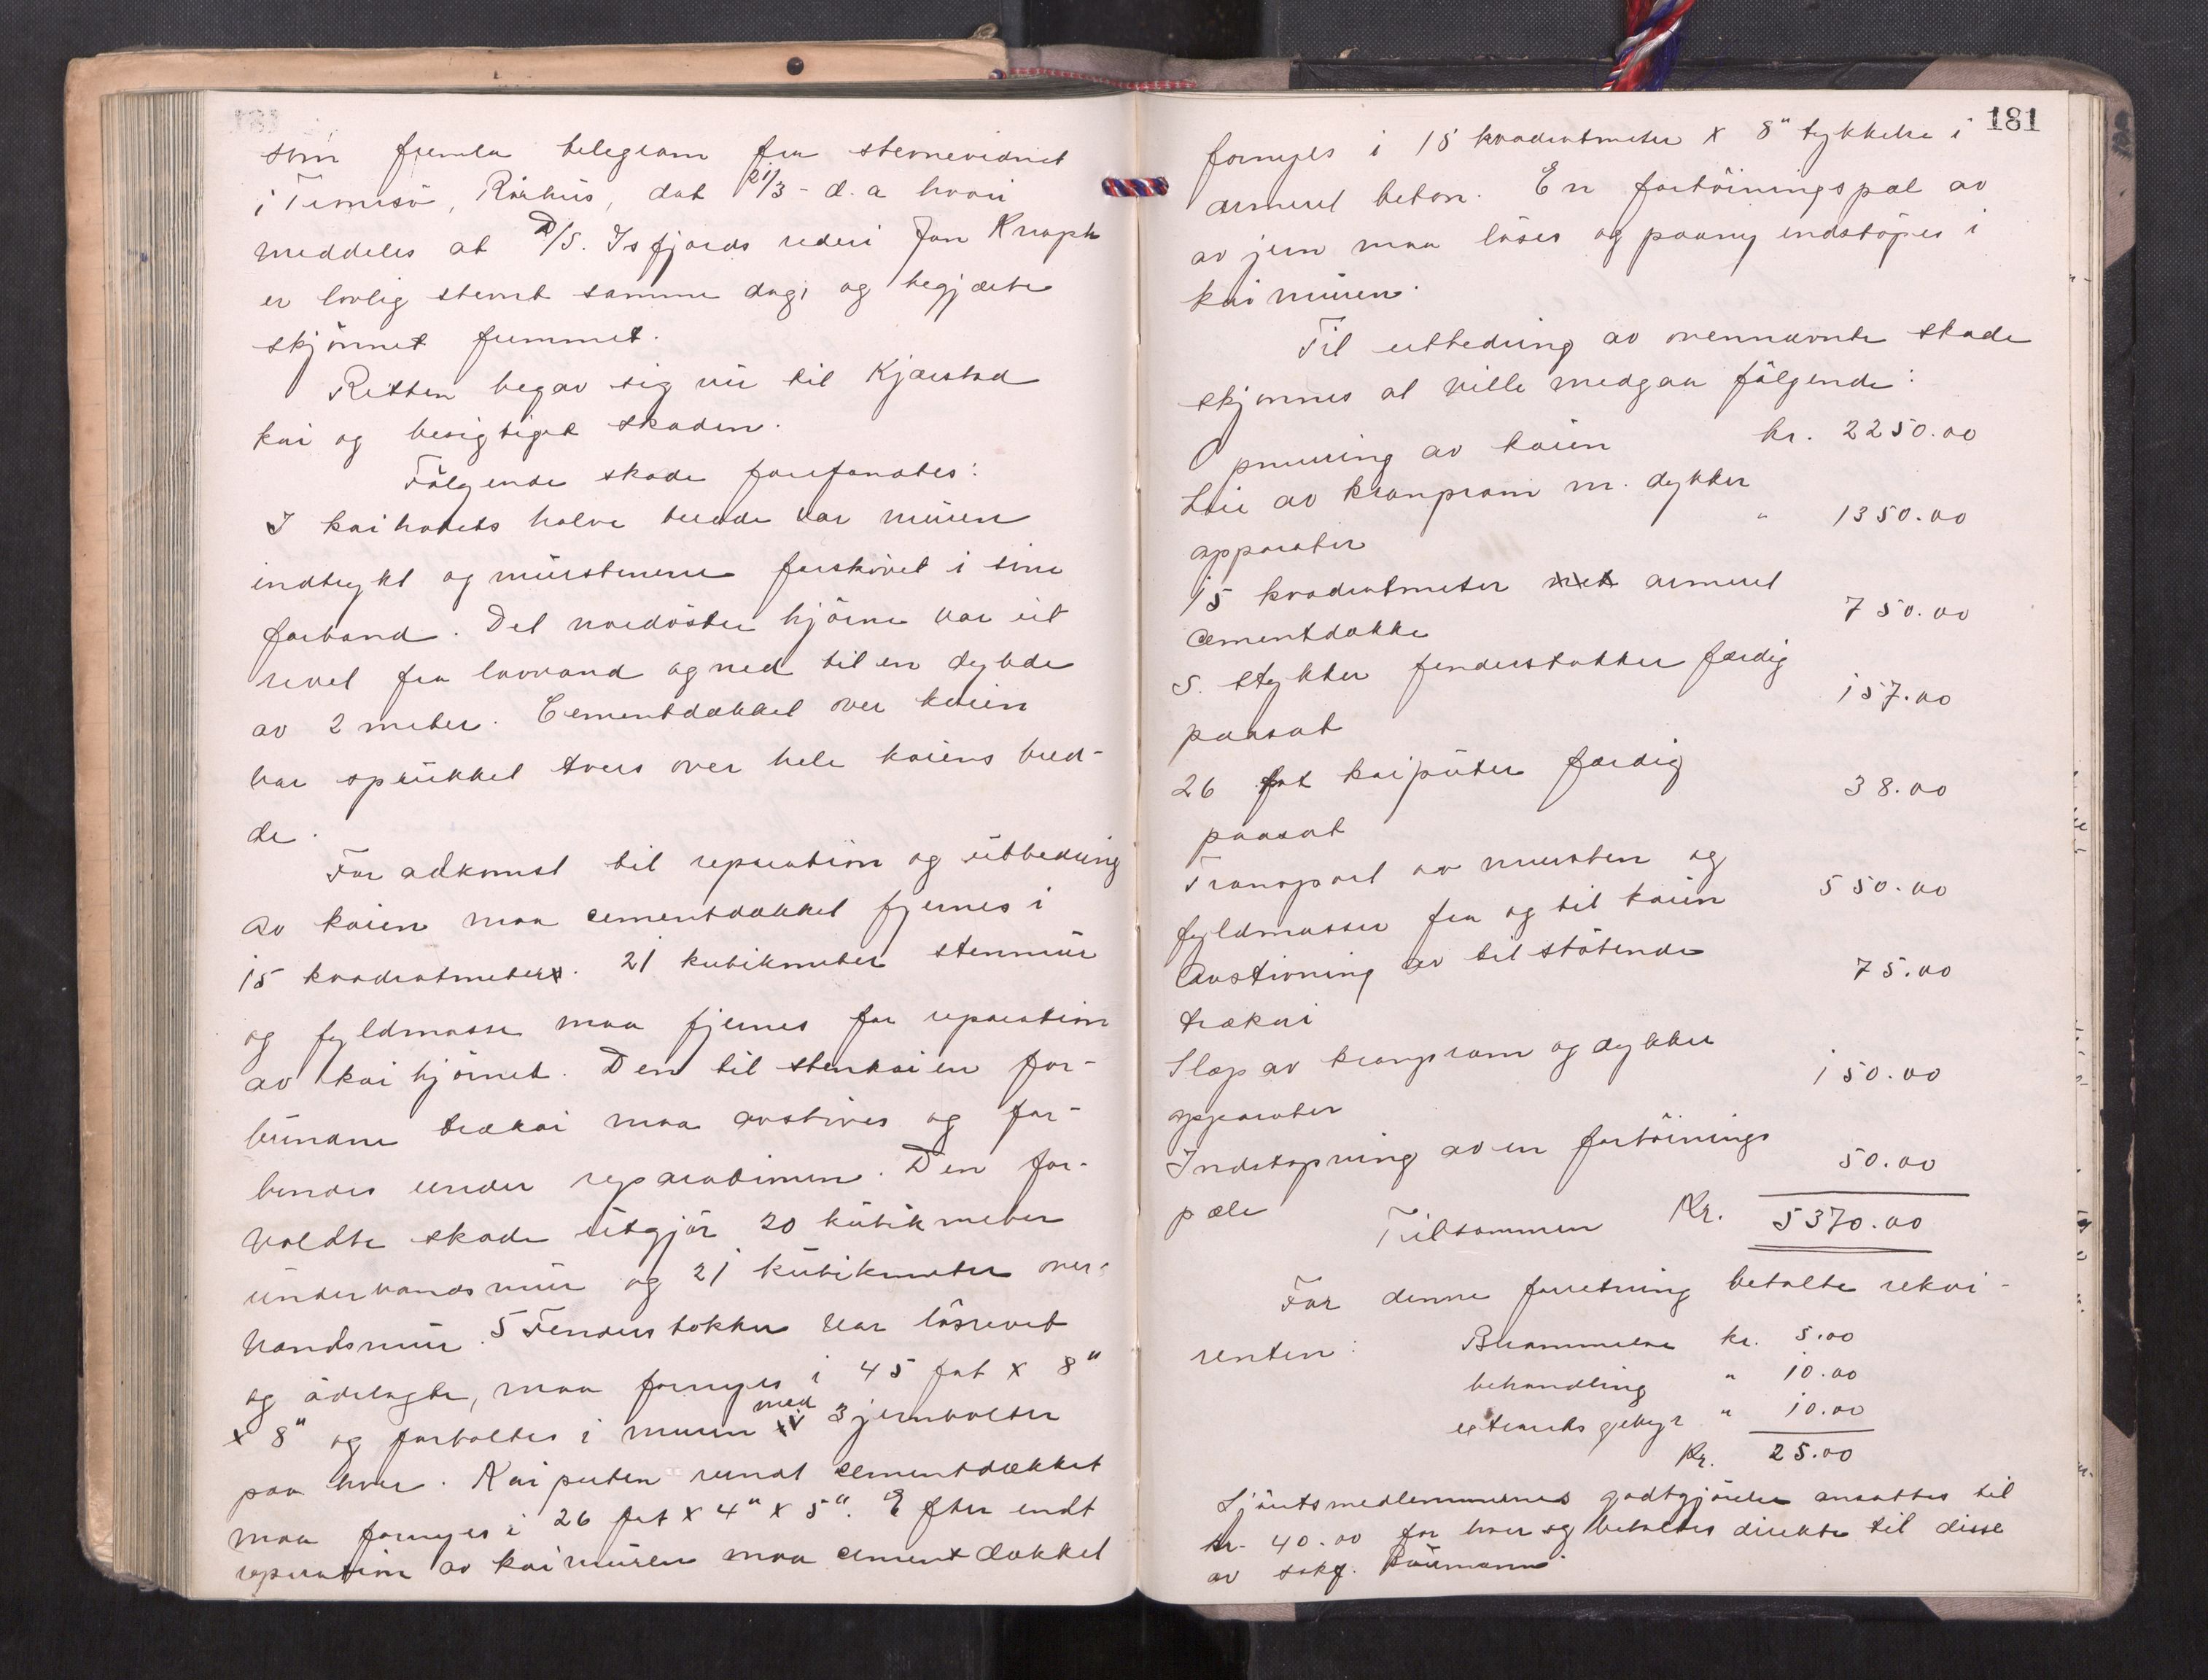 som fremla telegram fra stevnevidnet
i Tennesö, Rörhus, dat 21/3 - d.a hvori
meddeles at D/S. Isfjords rederi Jan Knaph
er lovlig stevnt samme dag, og begjærte
skjönnet fremmet.
Retten begav sig nu til Kjærstad
kai og besigtiget skaden.
Fölgende skade forefandtes:
I kaihodets halve bredde var muren
indtrykt og murstenene forskövet i sine
forband. Det nordöstre hjörne var ut
revet fra lavvand og ned til en dybde
av 2 meter. Cementdækket over kaien
var sprukket tvers over hele kaiens bred-
de.
For adkomst til reparation og utbedring
av kaien maa cementdækket fjernes i
15 kvadratmeter. 21 kubikmeter stenmur
og fyldmasse maa fjernes for reparation
av kaihjörnet. Den til stenkaien for-
bundne trækai maa avstives og for-
bindes under reparationen. Den for-
voldte skade utgjör 20 kubikmeter
undervandsmur og 21 kubikmeter over-
vandsmur. 5 Fenderstokker var lösrevet
og ödelagte, maa fornyes i 45 fot x 8"
x 8" og forboltes i muren med 3 jernbolter
paa hver. Kaiputen rundt cementdækket
maa fornyes i 26 fot x 4" x 5". Efter endt
reparation av kaimuren maa cementdækket
181
fornyes i 15 kvadratmeter x 8" tykkelse i
armeret beton. En fortöiningspæl av
av jern maa löses og paany indstöpes i
kaimuren.
Til utbedring av ovennævnte skade
skjönnes at ville medgaa fölgende:
Opmuring av kaien kr. 2250.00
Leie av kranpram m. dykker
apparater " 1350.00
15 kvadratmeter armeret
cementdække 750.00
5. stykker fenderstokker færdig
paasat 157.00
26 fot kaiputer færdig
paasat 38.00
Transport av mursten og
fyldmasser fra og til kaien 550.00
Avstivning av tilstötende
trækai 75.00
Slæp av kranpram og dykker
apparater 150.00
Indstøpning av en fortöinings
pæle 50.00
Tilsammen Kr. 5370.00
For denne forretning betalte rekvi-
renten: Berammelse kr. 5.00
behandling " 10.00
extrarets gebyr " 10.00
Kr. 25.00
Sjöretsmedlemmernes godtgjörelse ansattes til
kr. 40.00 for hver og betaltes direkte til disse
av sakf. Baumann.